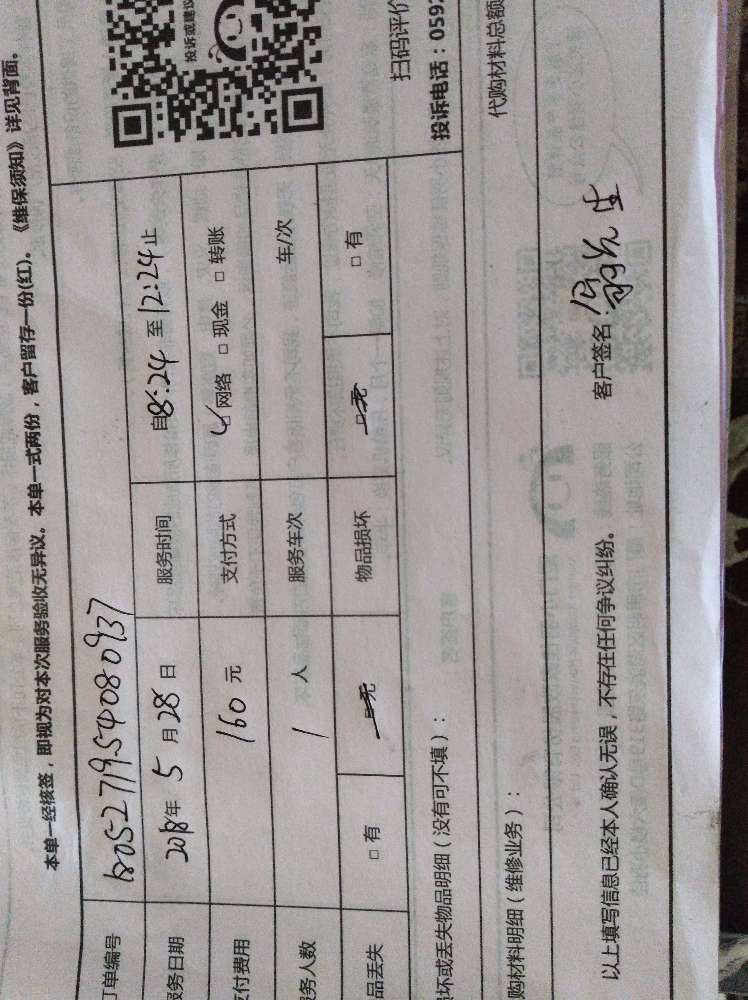 本单一经核签，即视为对本次服务验收无异议。本单一式两份，客户留存一份(红)。《维保须知》详见背面。
订单编号 180527195408093​7
投诉或建议
服务日期 2018年 5 月 28 日 服务时间 自8:24 至 12:24止
支付费用 160 元 支付方式 网络 □ 现金 □ 转账
服务人数 1 人 服务车次 车/次
物品丢失 □ 有 □ 无 物品损坏 □ 无 □ 有
扫码评价
投诉电话：059
损坏或丢失物品明细（没有可不填）：
购材料明细（维修业务）：
代购材料总额
以上填写信息已经本人确认无误，不存在任何争议纠纷。 客户签名：